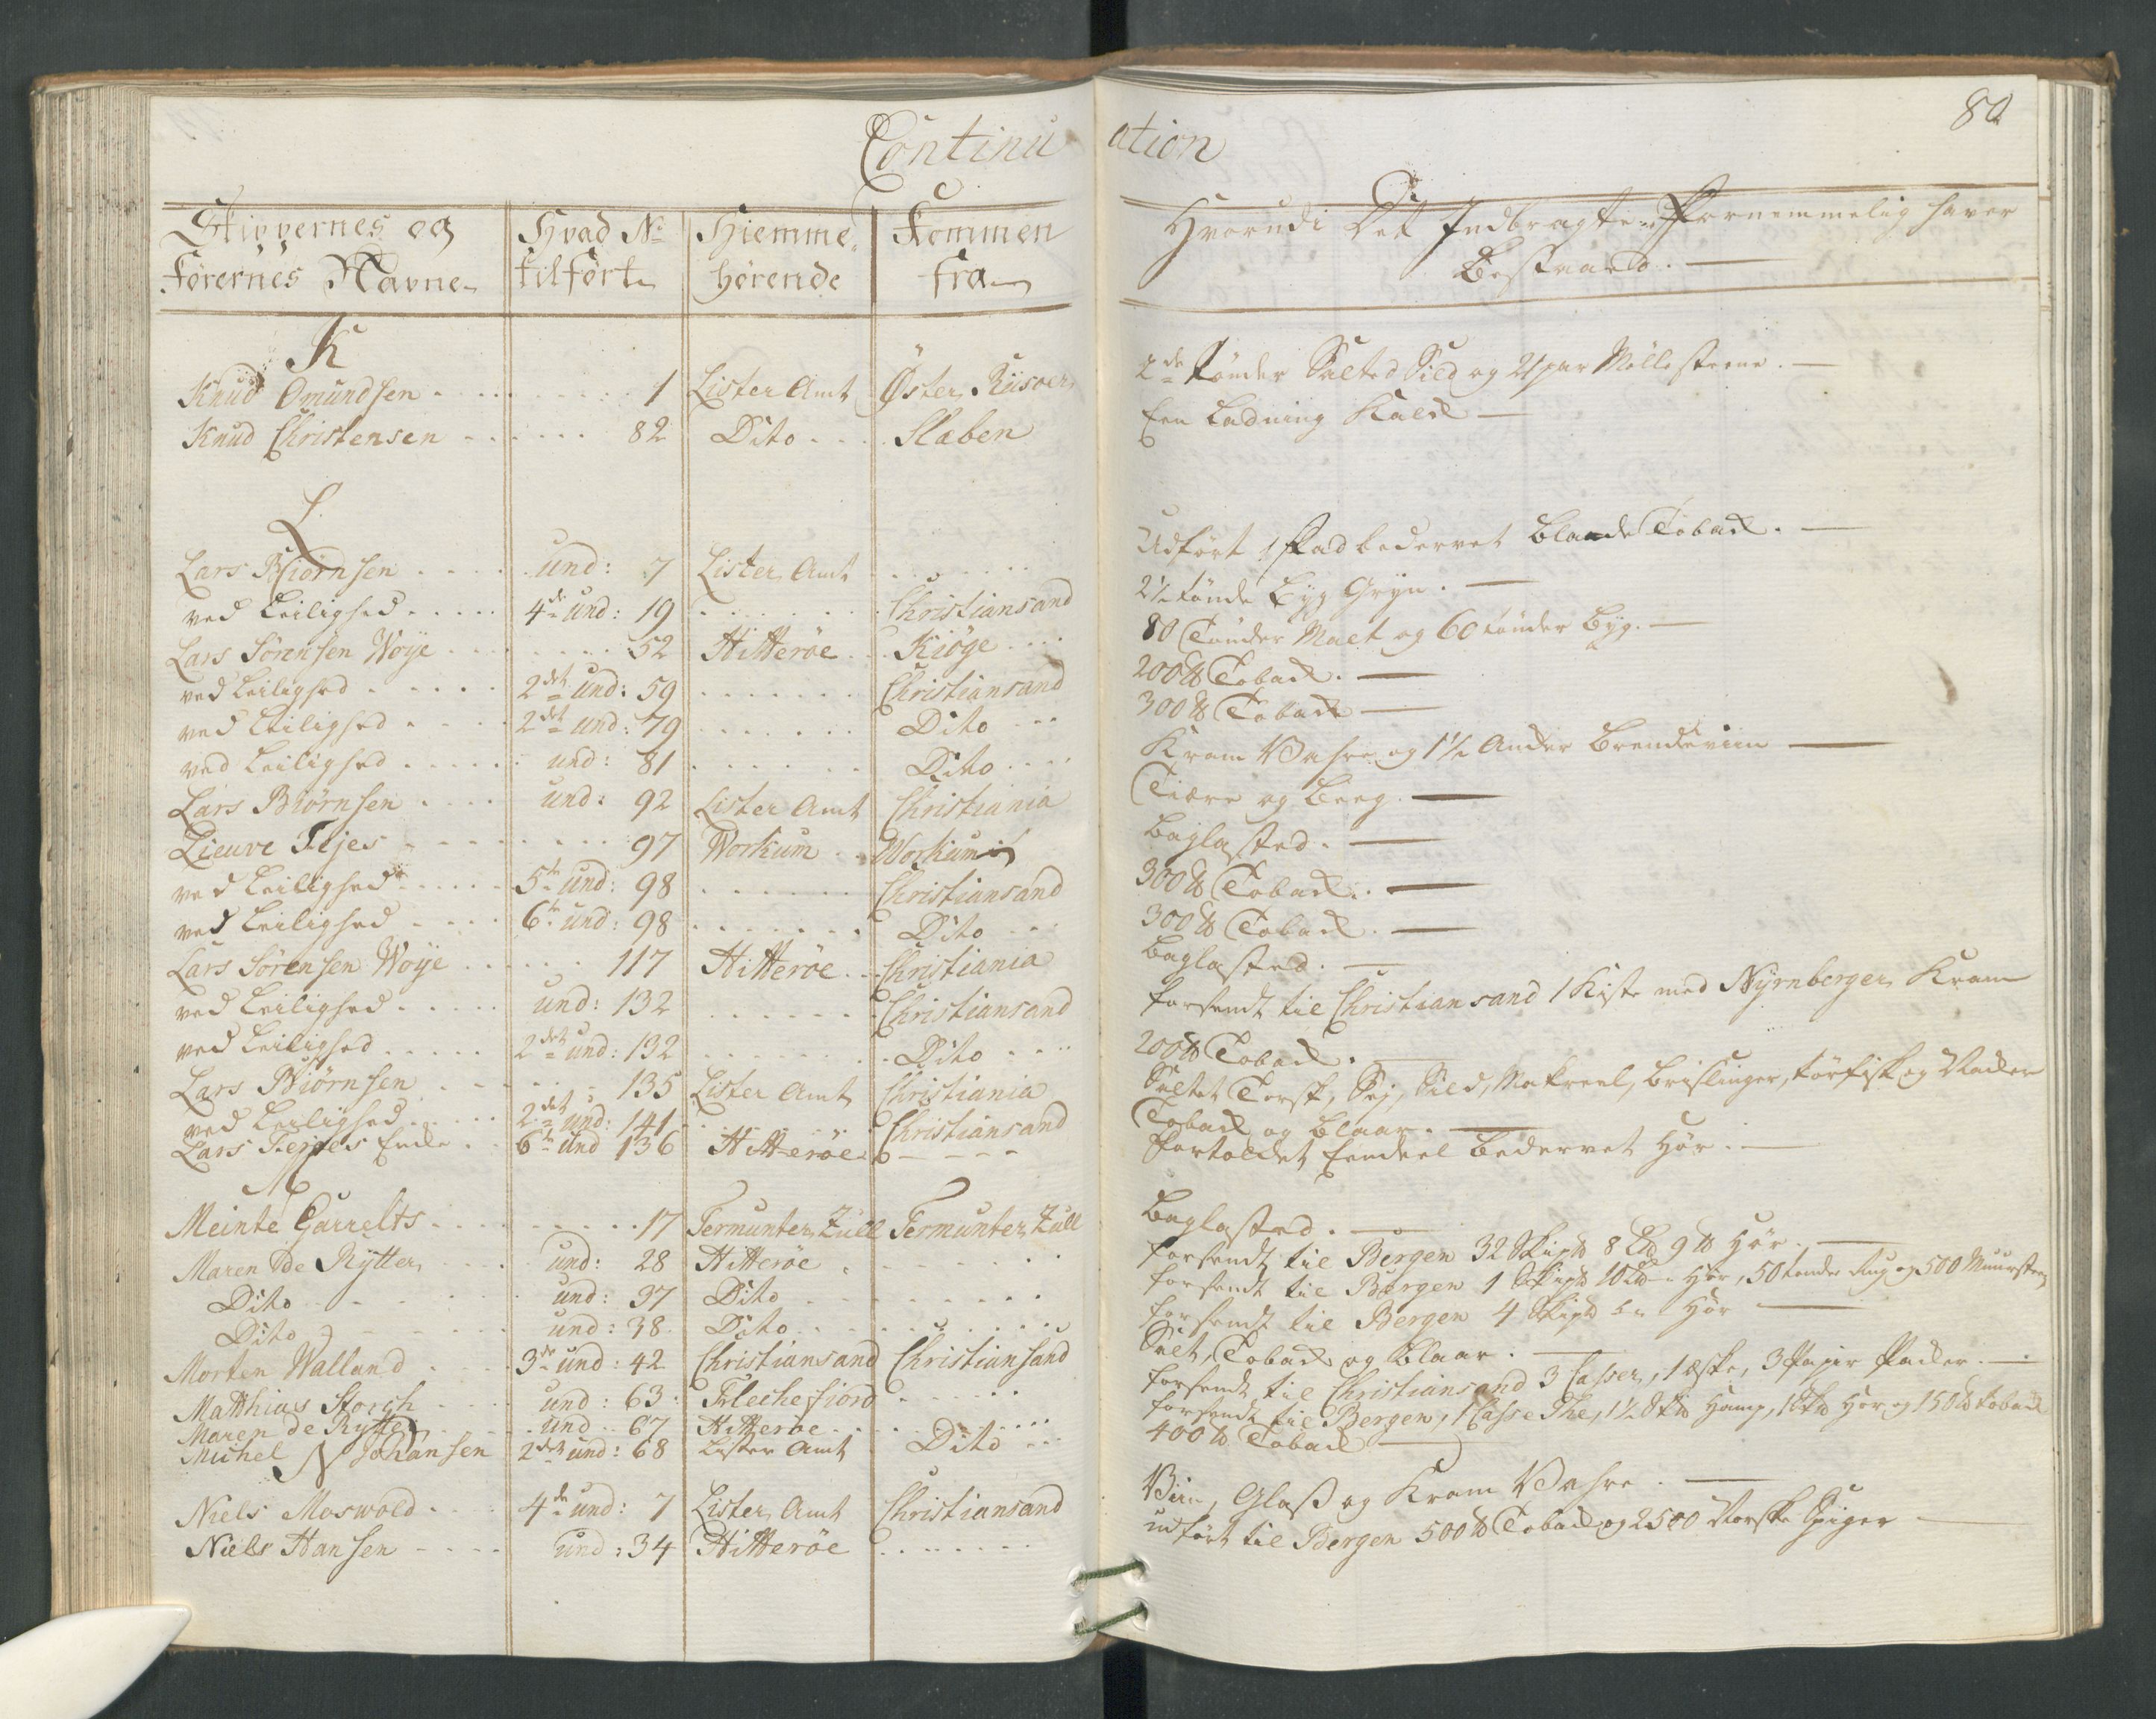 Continuation
80
Skippernes og Førernes Navne
Hvad No tilført
Hiemmehørende
Kommen fra
Hvorudi Det Indbragte Fornemmelig haver Bestaaed.
K
Knud Omundsen 1 Lister Amt Øster Riisøer 2de Tønder Salted Sild og 21 par Møllesteene.
Knud Christensen 82 Dito Slaben Een Ladning Kalck
L
Lars Biørnsen und: 7 Lister Amt Udført 1 Fad bedervet Blade Toback.
ved Leilighed 4de und: 19 Christiansand 2½ tønde Byg Gryn.
Lars Sørensen Woye 52 Hitterøe Kiöge 80 Tønder Malt og 60 tønder Byg.
ved Leilighed 2det und: 59 Christiansand 200 ℔ Toback.
ved Leilighed 2det und: 79 Dito 300 ℔ Toback
ved Leilighed und: 81 Dito Kram Wahre og 1½ Ancker Brendeviin
Lars Biørnsen und: 92 Lister Amt Christiania Tiære og Beeg.
Lieuve Tejes 97 Workum Workum Baglasted.
ved Leilighed 5te und: 98 Christiansand 300 ℔ Toback.
ved Leilighed 6te und: 98 Dito 300 ℔ Toback.
Lars Sørensen Woye 117 Hitterøe Christiania Baglasted.
ved Leilighed und: 132 Christiansand forsendt til Christiansand 1 Kiste med Nyrnberger Kram
ved Leilighed 2det und: 132 Dito 200 ℔ Toback.
Lars Biørnsen 135 Lister Amt Christiania Saltet Torsk, Sej, Sild, Makreel, Brislinger, tørfisk og
ved Leilighed 2det und: 141 Christiansand Toback og Blaar.
Lars Terjes Encke 6te und 136 Hitterøe Fortoldet Eendeel Bedervet Hør.
M
Meinte Garrelts 17 Termunter Zull Termunter Zull Baglasted.
Maren de Rytter und: 28 Hitterøe forsendt til Bergen 32 Skip℔ 8 L℔ 9 ℔ Hør.
Dito und: 37 Dito forsendt til Bergen 1 Skip℔ 10 L℔ Hør, 50 tønder Rug og 500 Muursteen
Dito und: 38 Dito forsendt til Bergen 4 Skip℔ Hør
Morten Walland 3de und: 42 Christiansand Christiansand Salt, Toback og Blaar.
Matthias Storch und: 63 Flechefiord forsendt til Christiansand 3 Casser, 1 æske, 3 Papir Packer.
Maren de Rytter und 67 Hitterøe forsendt til Bergen, 1 Casse The, 1½ Sk℔ Hamp, 1 Sk℔ Hør og 150 ℔ toback
Michel Johansen 2det und: 68 Lister Amt Dito 400 ℔ Toback
N
Niels Moswold 4de und: 7 Lister Amt Christiansand Viin, Glass og Kram Wahre.
Niels Hansen und: 34 Hitterøe udført til Bergen 500 ℔ Toback og 2500 Norske Spiger